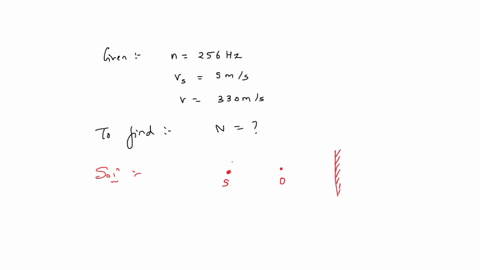 Given :- n = 256 Hz
vs = 5 m/s
v = 330 m/s
To find :- N = ?
Soln :-
S O